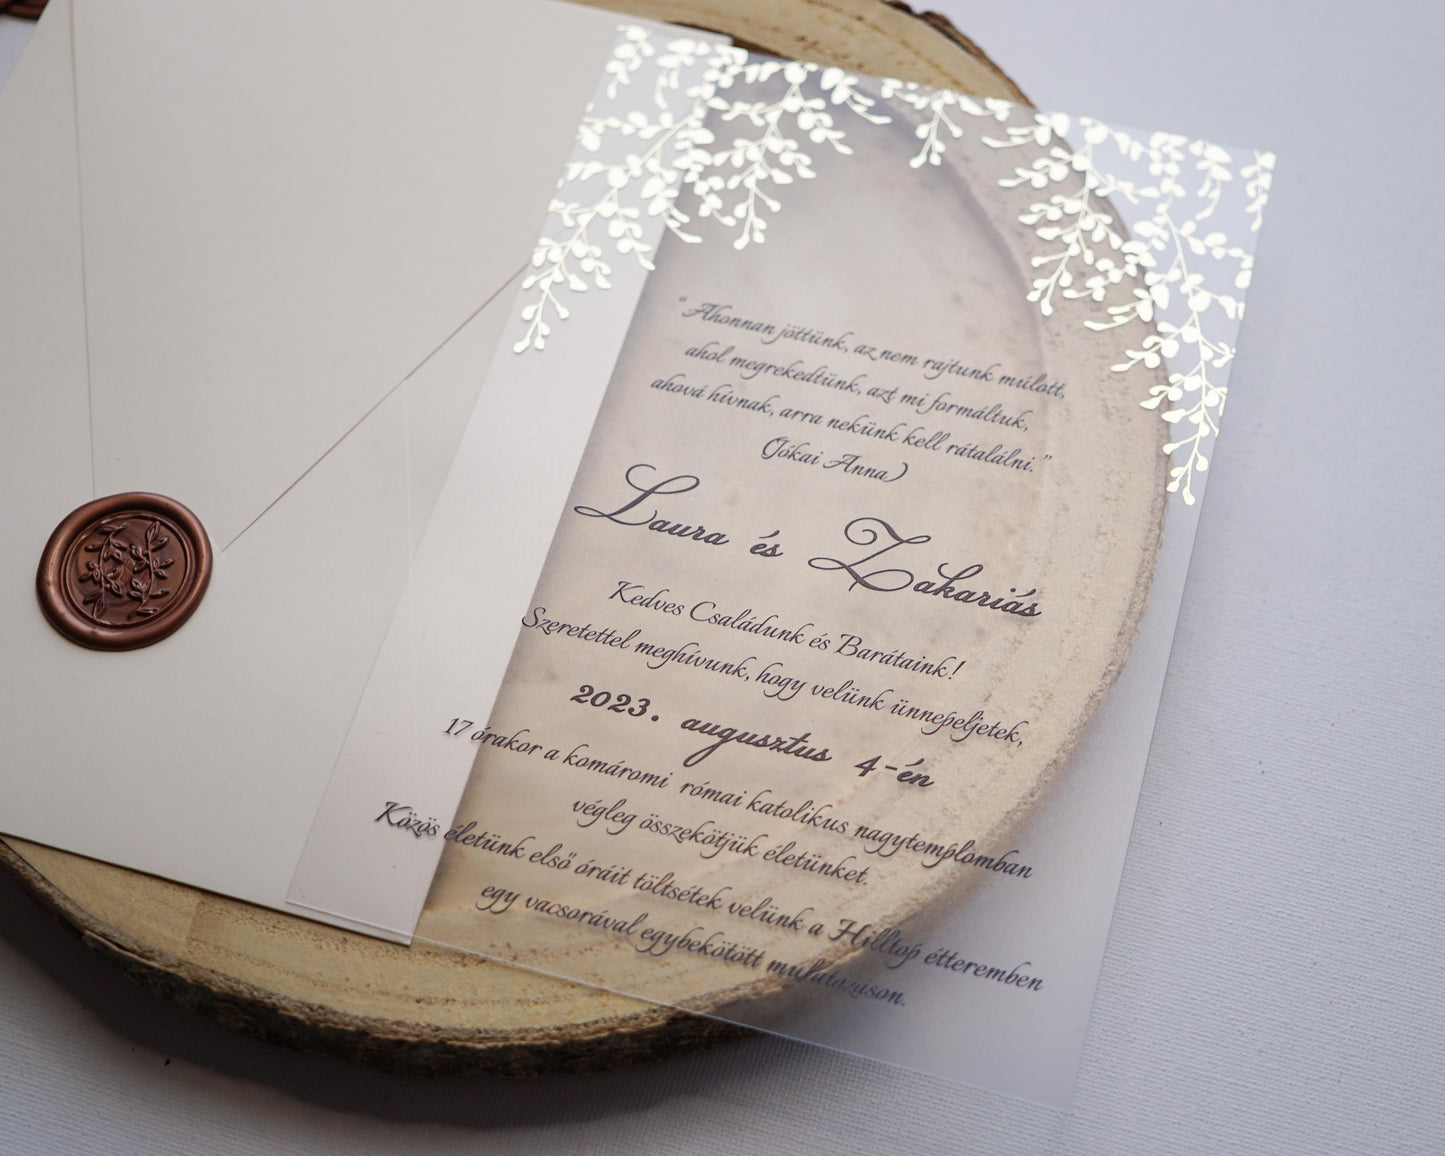 “Ahonnan jöttünk, az nem rajtunk múlott,
ahol megrekedtünk, azt mi formáltuk,
ahová hívnak, arra nekünk kell rátalálni.”
(Jókai Anna)
Laura és Zakariás
Kedves Családunk és Barátaink!
Szeretettel meghívunk, hogy velünk ünnepeljetek,
2023. augusztus 4-én
17 órakor a komáromi római katolikus nagytemplomban
végleg összekötjük életünket.
Közös életünk első óráit töltsétek velünk a Hilltop étteremben
egy vacsorával egybekötött mulatozáson.